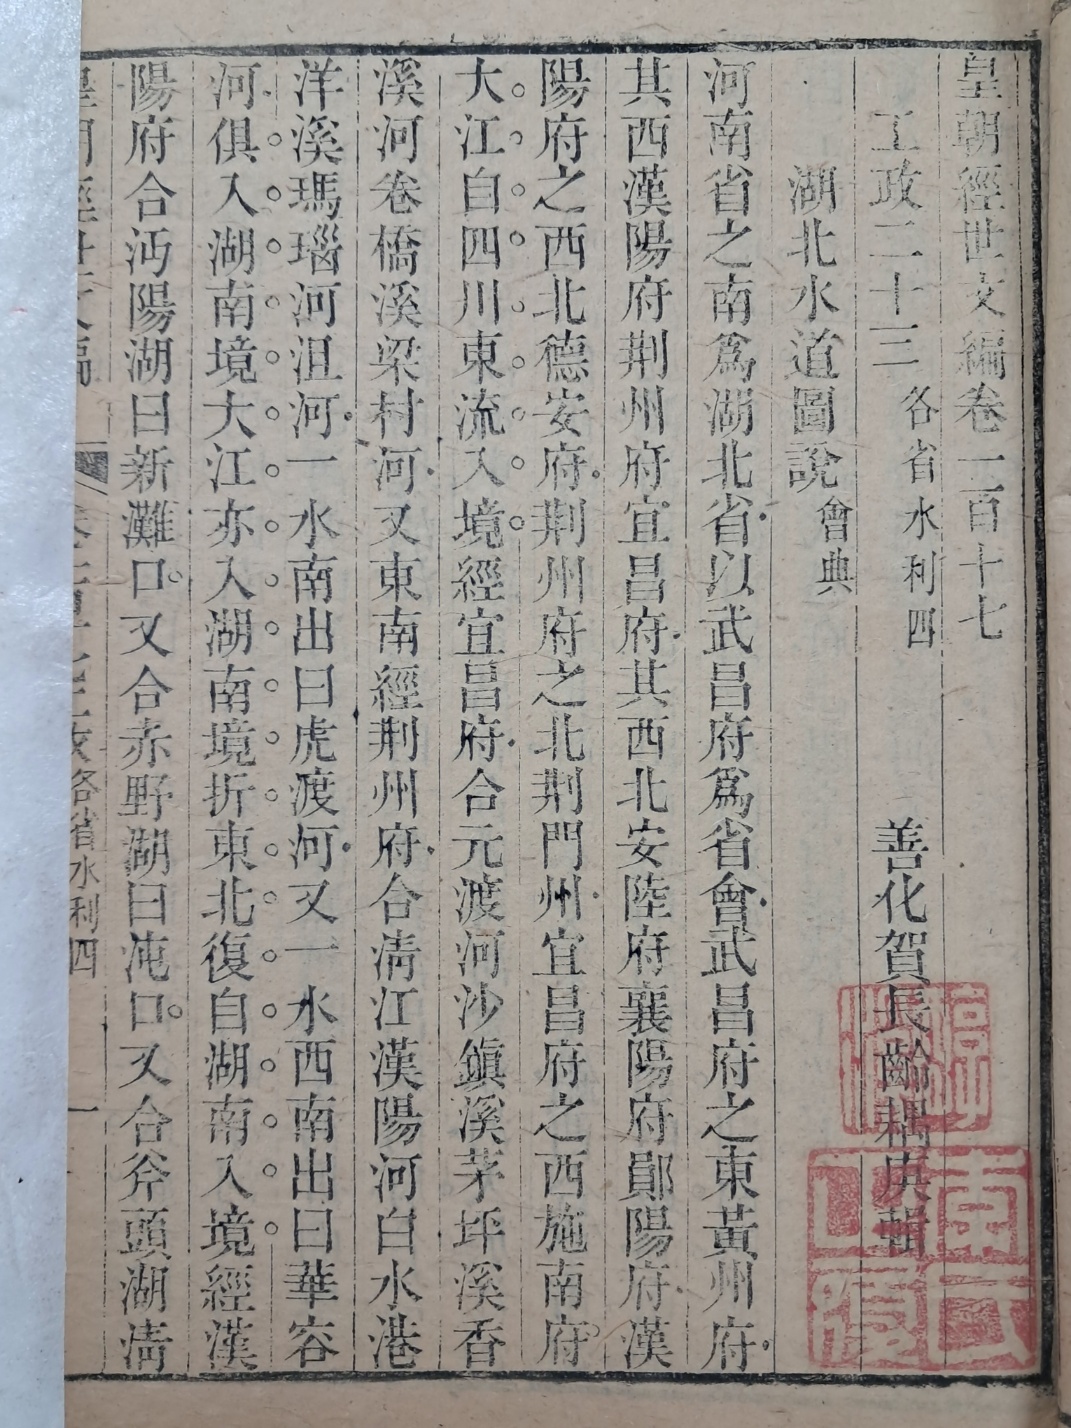 皇朝經世文編卷一百十七
工政二十三各省水利四 善化賀長齡耦庚輯
湖北水道圖說會典
河南省之南爲湖北省以武昌府爲省會武昌府之東黃州府
其西漢陽府荆州府宜昌府其西北安陸府襄陽府鄖陽府漢
陽府之西北德安府荆州府之北荆門州宜昌府之西施南府
大江自四川東流入境經宜昌府合元渡河沙鎭溪茅坪溪香
溪河卷橋溪梁村河又東南經荆州府合清江漢陽河白水港
洋溪瑪瑙河沮河一水南出曰虎渡河又一水西南出曰華容
河俱入湖南境大江亦入湖南境折東北復自湖南入境經漢
陽府合沔陽湖曰新灘口又合赤野湖曰沌口又合斧頭湖清
各省水利四
一